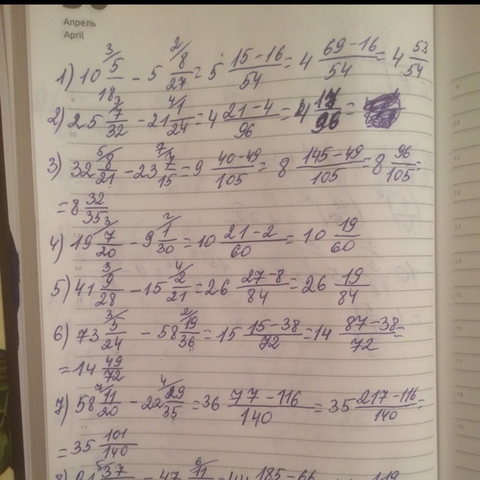 Апрель
April
1) 10 5/18 - 5 8/27 = 5 15-16/54 = 4 69-16/54 = 4 53/54
2) 25 7/32 - 21 1/24 = 4 21-4/96 = 4 17/96 =
3) 32 8/21 - 23 7/15 = 9 40-49/105 = 8 145-49/105 = 8 96/105 =
= 8 32/35
4) 19 7/20 - 9 1/30 = 10 21-2/60 = 10 19/60
5) 41 9/28 - 15 2/21 = 26 27-8/84 = 26 19/84
6) 73 5/24 - 58 19/36 = 15 15-38/72 = 14 87-38/72 =
= 14 49/72
7) 58 11/20 - 22 29/35 = 36 77-116/140 = 35 217-116/140 =
= 35 101/140